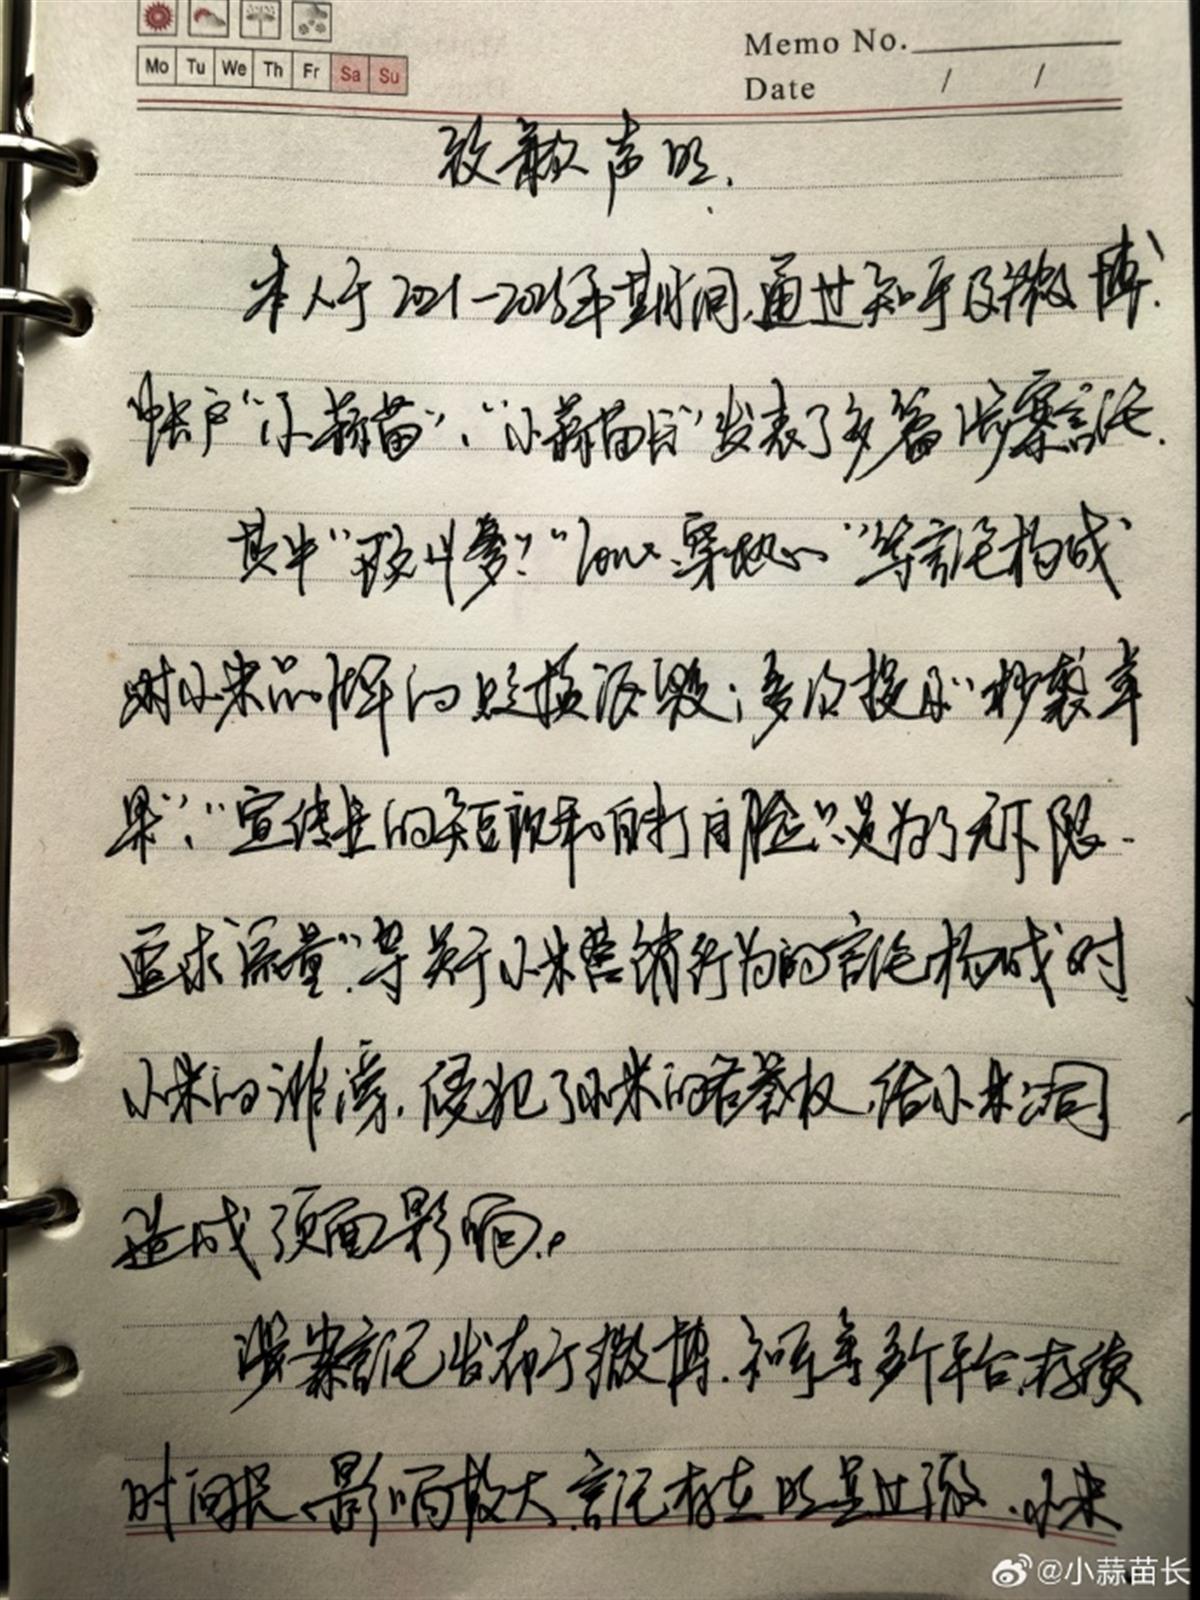 Mo Tu We Th Fr Sa Su
Memo No.
Date / /
致歉声明.
本人于2021-2025年期间,通过知乎及微博
帐户“小蒜苗”、“小蒜苗长”发表了多篇涉案言论.
其中 等言论构成
对小米品牌的贬损诋毁;多次提及“抄袭苹
果”、“宣传上的短视和自打自脸只是为了无下限
追求流量”等关于小米营销行为的言论构成对
小米的诽谤,侵犯了小米的名誉权,给小米公司
造成负面影响。
涉案言论发布于微博、知乎等多个平台,存续
时间长、影响较大,言论存在明显过激、小米
@小蒜苗长